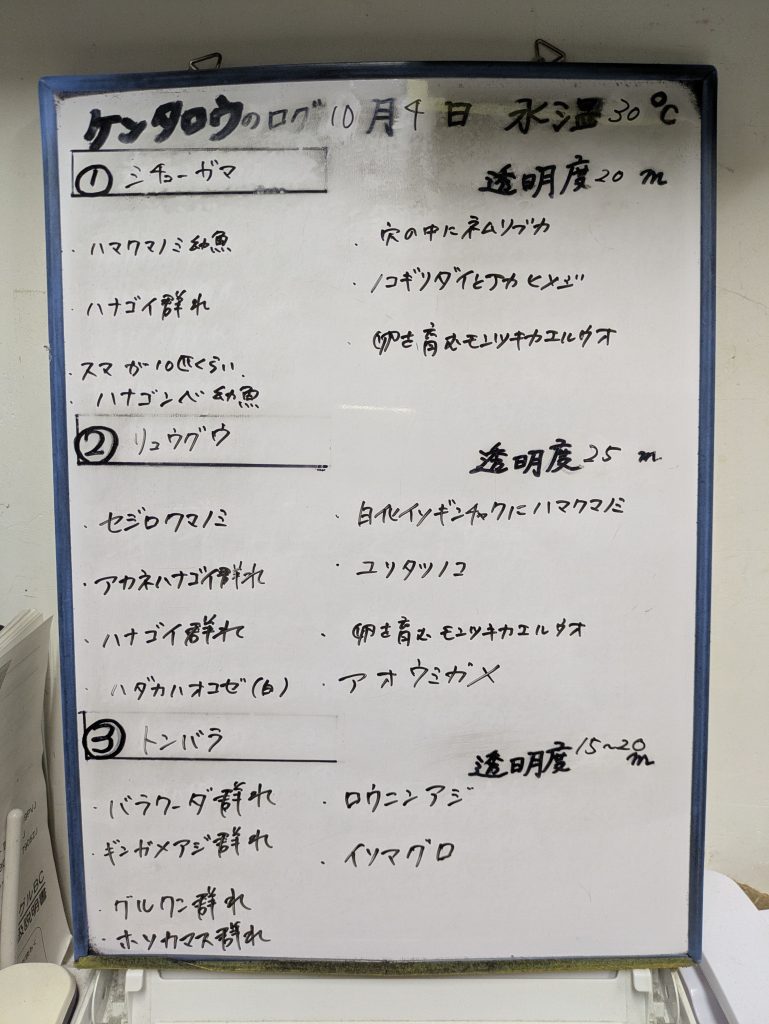 ケンタロウのログ 10月4日 水温30℃
① シチューガマ
透明度20m
・ハマクマノミ幼魚
・ハナゴイ群れ
・スマが10匹くらい
・ハナゴンベ幼魚
・穴の中にネムリブカ
・ノコギリダイとアカヒメジ
・卵を育むモンツキカエルウオ
② リュウグウ
透明度25m
・セジロクマノミ
・アカネハナゴイ群れ
・ハナゴイ群れ
・ハダカハオコゼ(白)
・白化イソギンチャクにハマクマノミ
・ユリタツノコ
・卵を育むモンツキカエルウオ
・アオウミガメ
③ トンバラ
透明度15~20m
・バラクーダ群れ
・ギンガメアジ群れ
・グルクン群れ
・ホソカマス群れ
・ロウニンアジ
・イソマグロ